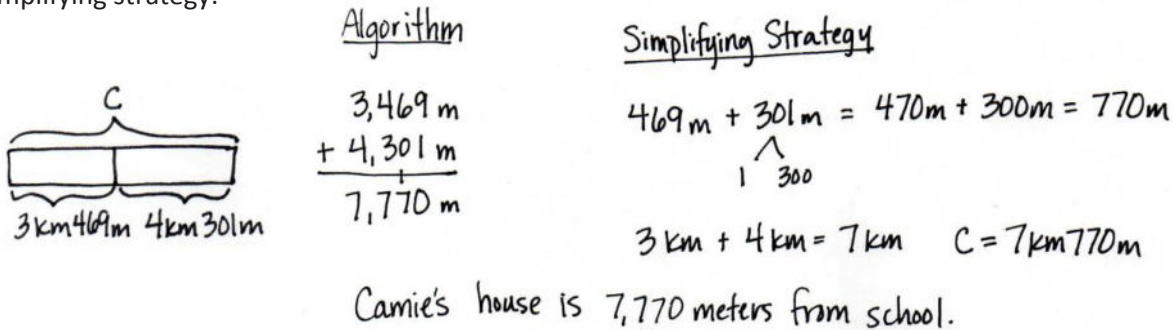 simplifying strategy.
Algorithm
3,469 m
+ 4,301 m
7,770 m
Simplifying Strategy
469 m + 301 m = 470 m + 300 m = 770 m
1 300
3 km + 4 km = 7 km C = 7 km 770 m
C
3 km 469 m 4 km 301 m
Camie's house is 7,770 meters from school.